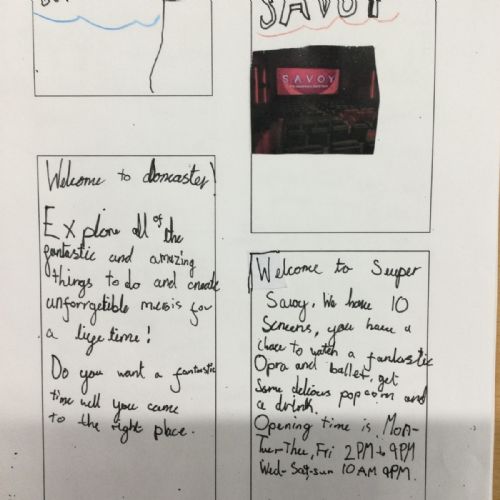 SAVOY
SAVOY
Welcome to doncaster!
Explore all of the
fantastic and amazing
things to do and create
unforrgetible meois for
a lige time!
Do you want a fantastic
time well you came
to the right place.
Welcome to Super
Savoy. We have 10
screens, you have a
chace to watch a fantastic
Opra and ballet. get
Some delious popcorn and
a drink.
Opening time is, Mon-
Tue-Thur, Fri 2PM to 9PM
Wed-Sat-sun 10 AM 9PM.